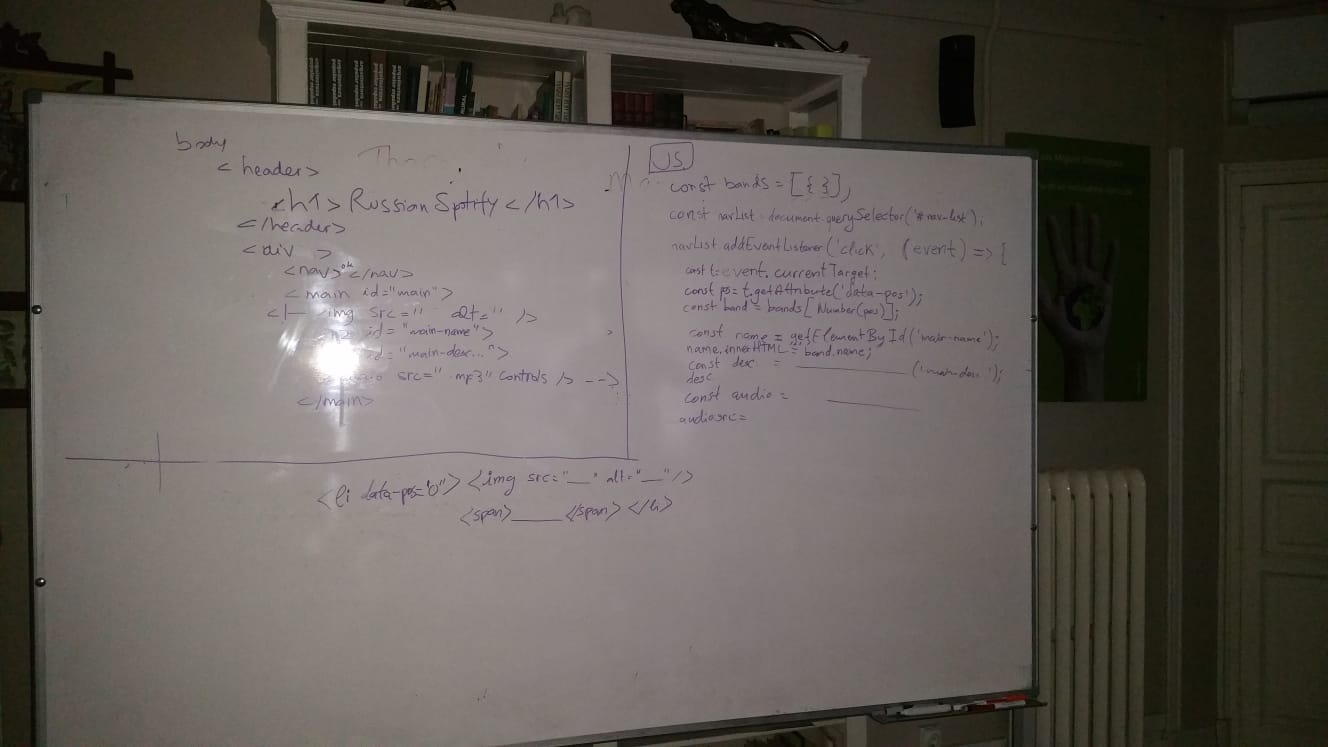 body
<header>
<h1> Russian Spotify </h1>
</header>
<div >
<nav> </nav>
<main id="main">
<!— img src="" alt="" />
id="main-name">
id="main-desc...">
src=" .mp3" controls /> -->
</main>
<li data-pos="0"> <img src="__" alt="__"/>
<span>____</span> </li>
JS
const bands = [{ }];
const navList = document.querySelector('#nav-list');
navList.addEventListener('click', (event) => {
const t = event.currentTarget;
const pos = t.getAttribute('data-pos');
const band = bands[Number(pos)];
const name = getElementById('main-name');
name.innerHTML = band.name;
const desc = ____ ('main-desc');
desc
const audio = ____
audio src=